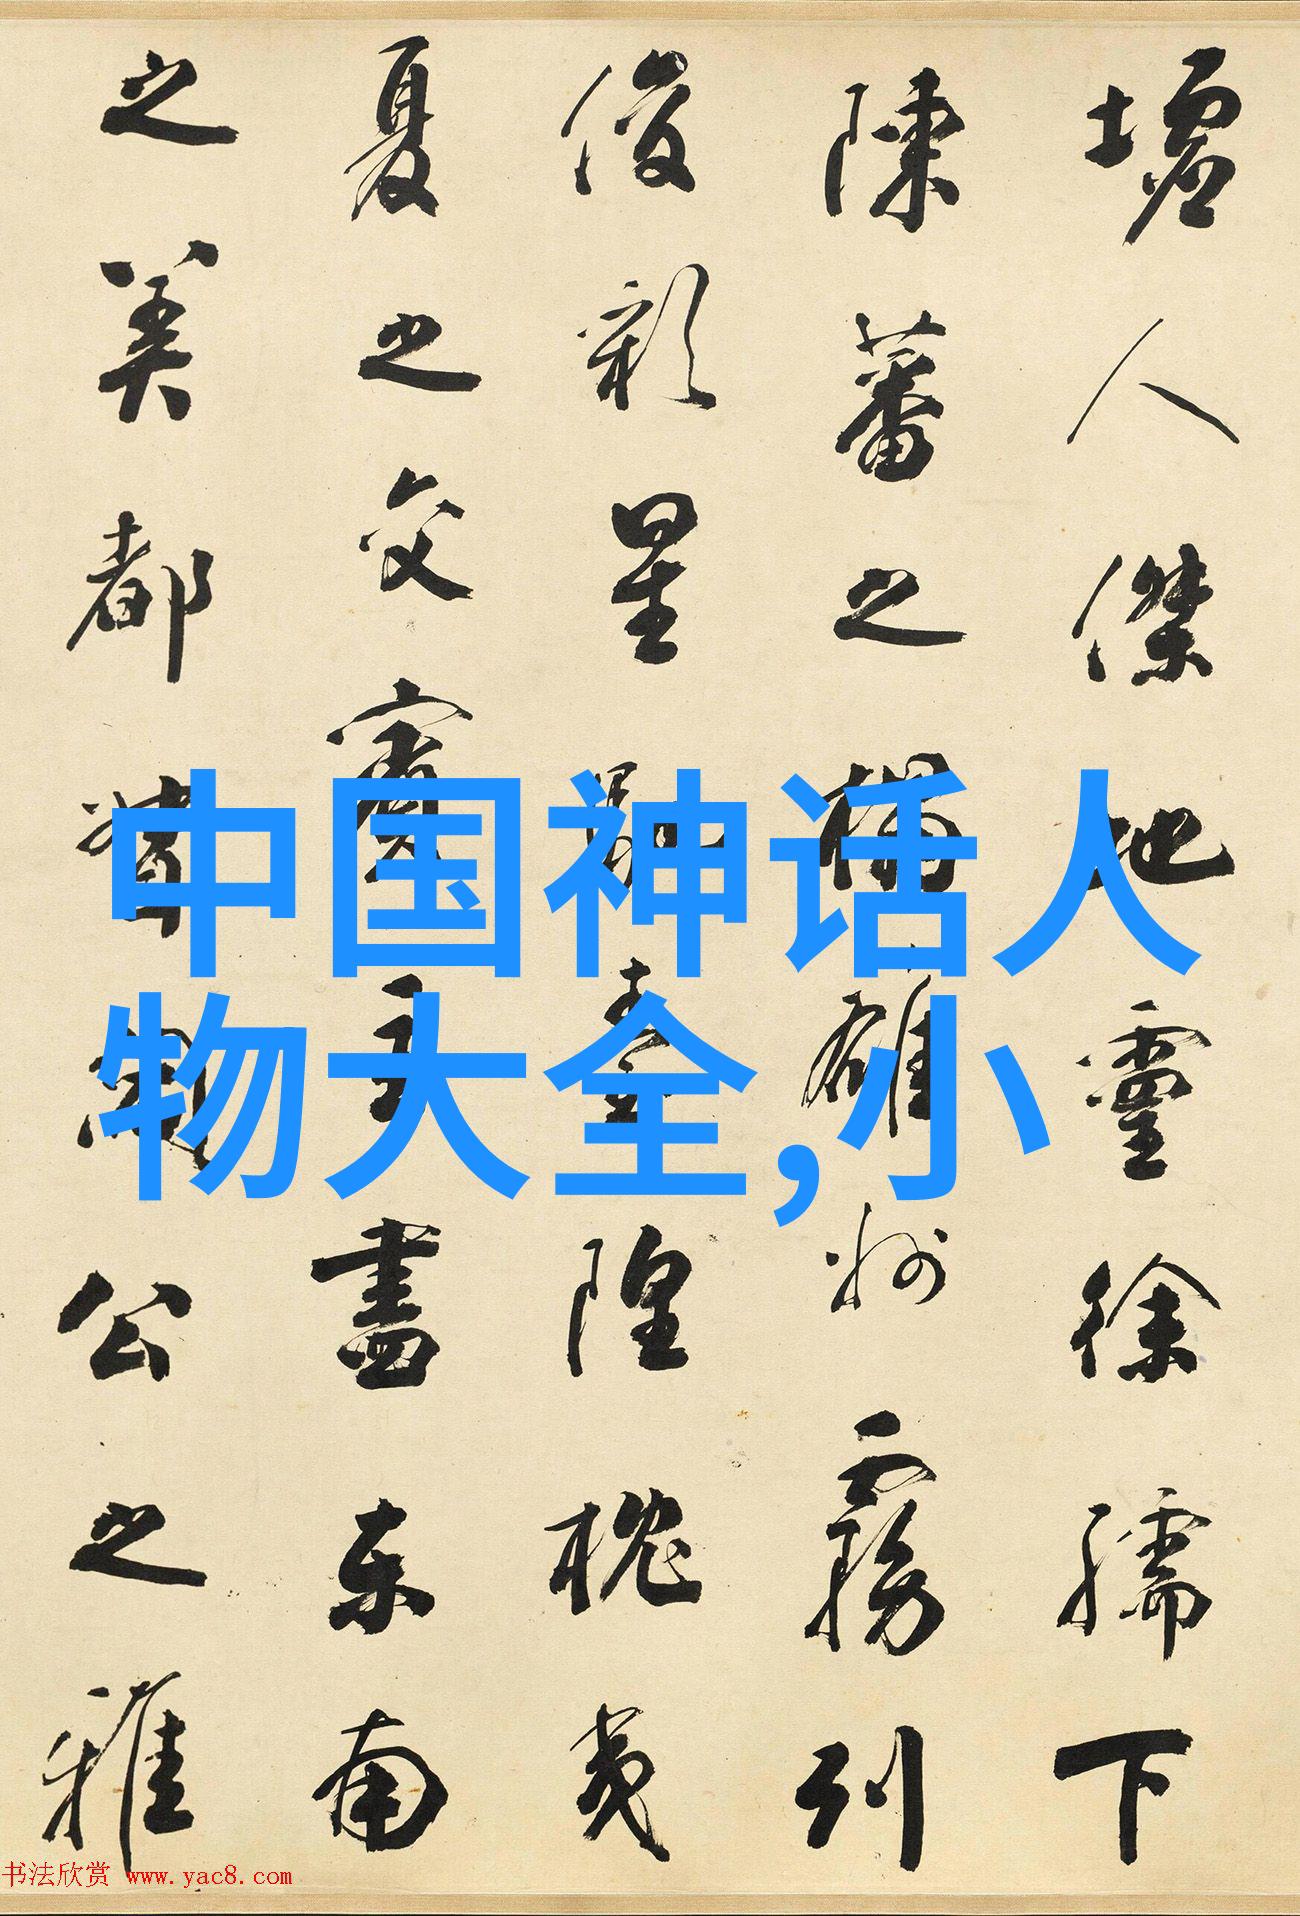 墟人傑地靈徐孺下
陳蕃之榻雄州霧列
俊彩星馳臺隍枕夷
夏之交賓主盡東南
之美都督閻公之雅
中国神话人
物大全,小
书法欣赏 www.yac8.com